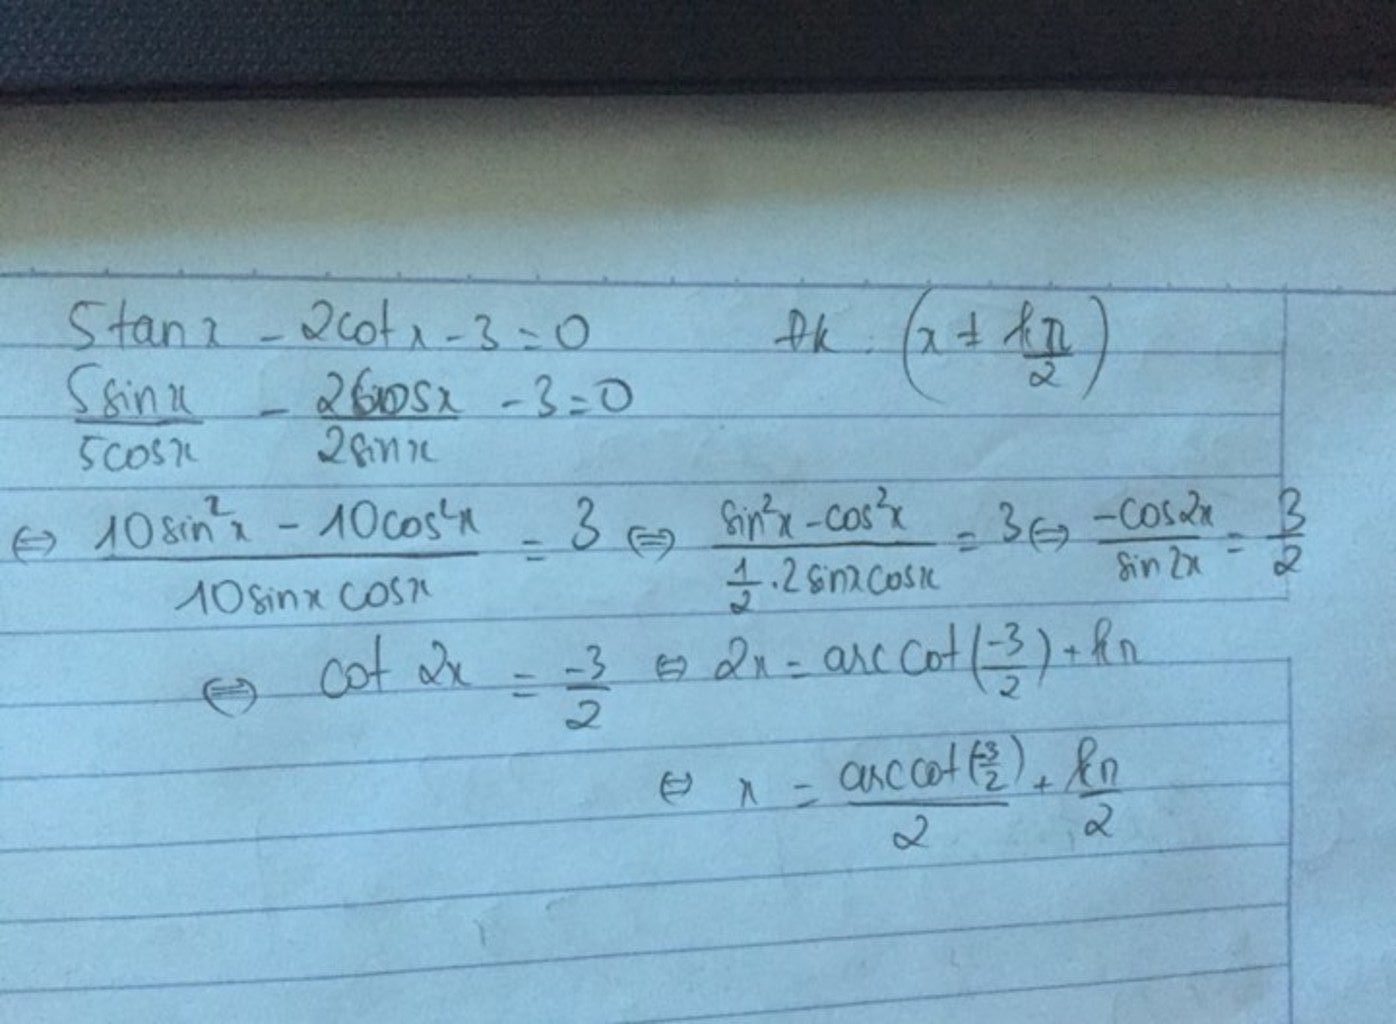 5tanx - 2cotx - 3 = 0 đk: (x ≠ kπ/2)
5sinx/5cosx - 2cosx/2sinx - 3 = 0
⇔ (10sin²x - 10cos²x)/(10sinx cosx) = 3 ⇔ (sin²x - cos²x)/(1/2 . 2sinxcosx) = 3 ⇔ -cos2x/sin2x = 3/2
⇔ cot 2x = -3/2 ⇔ 2x = arccot(-3/2) + kπ
⇔ x = arccot(-3/2)/2 + kπ/2